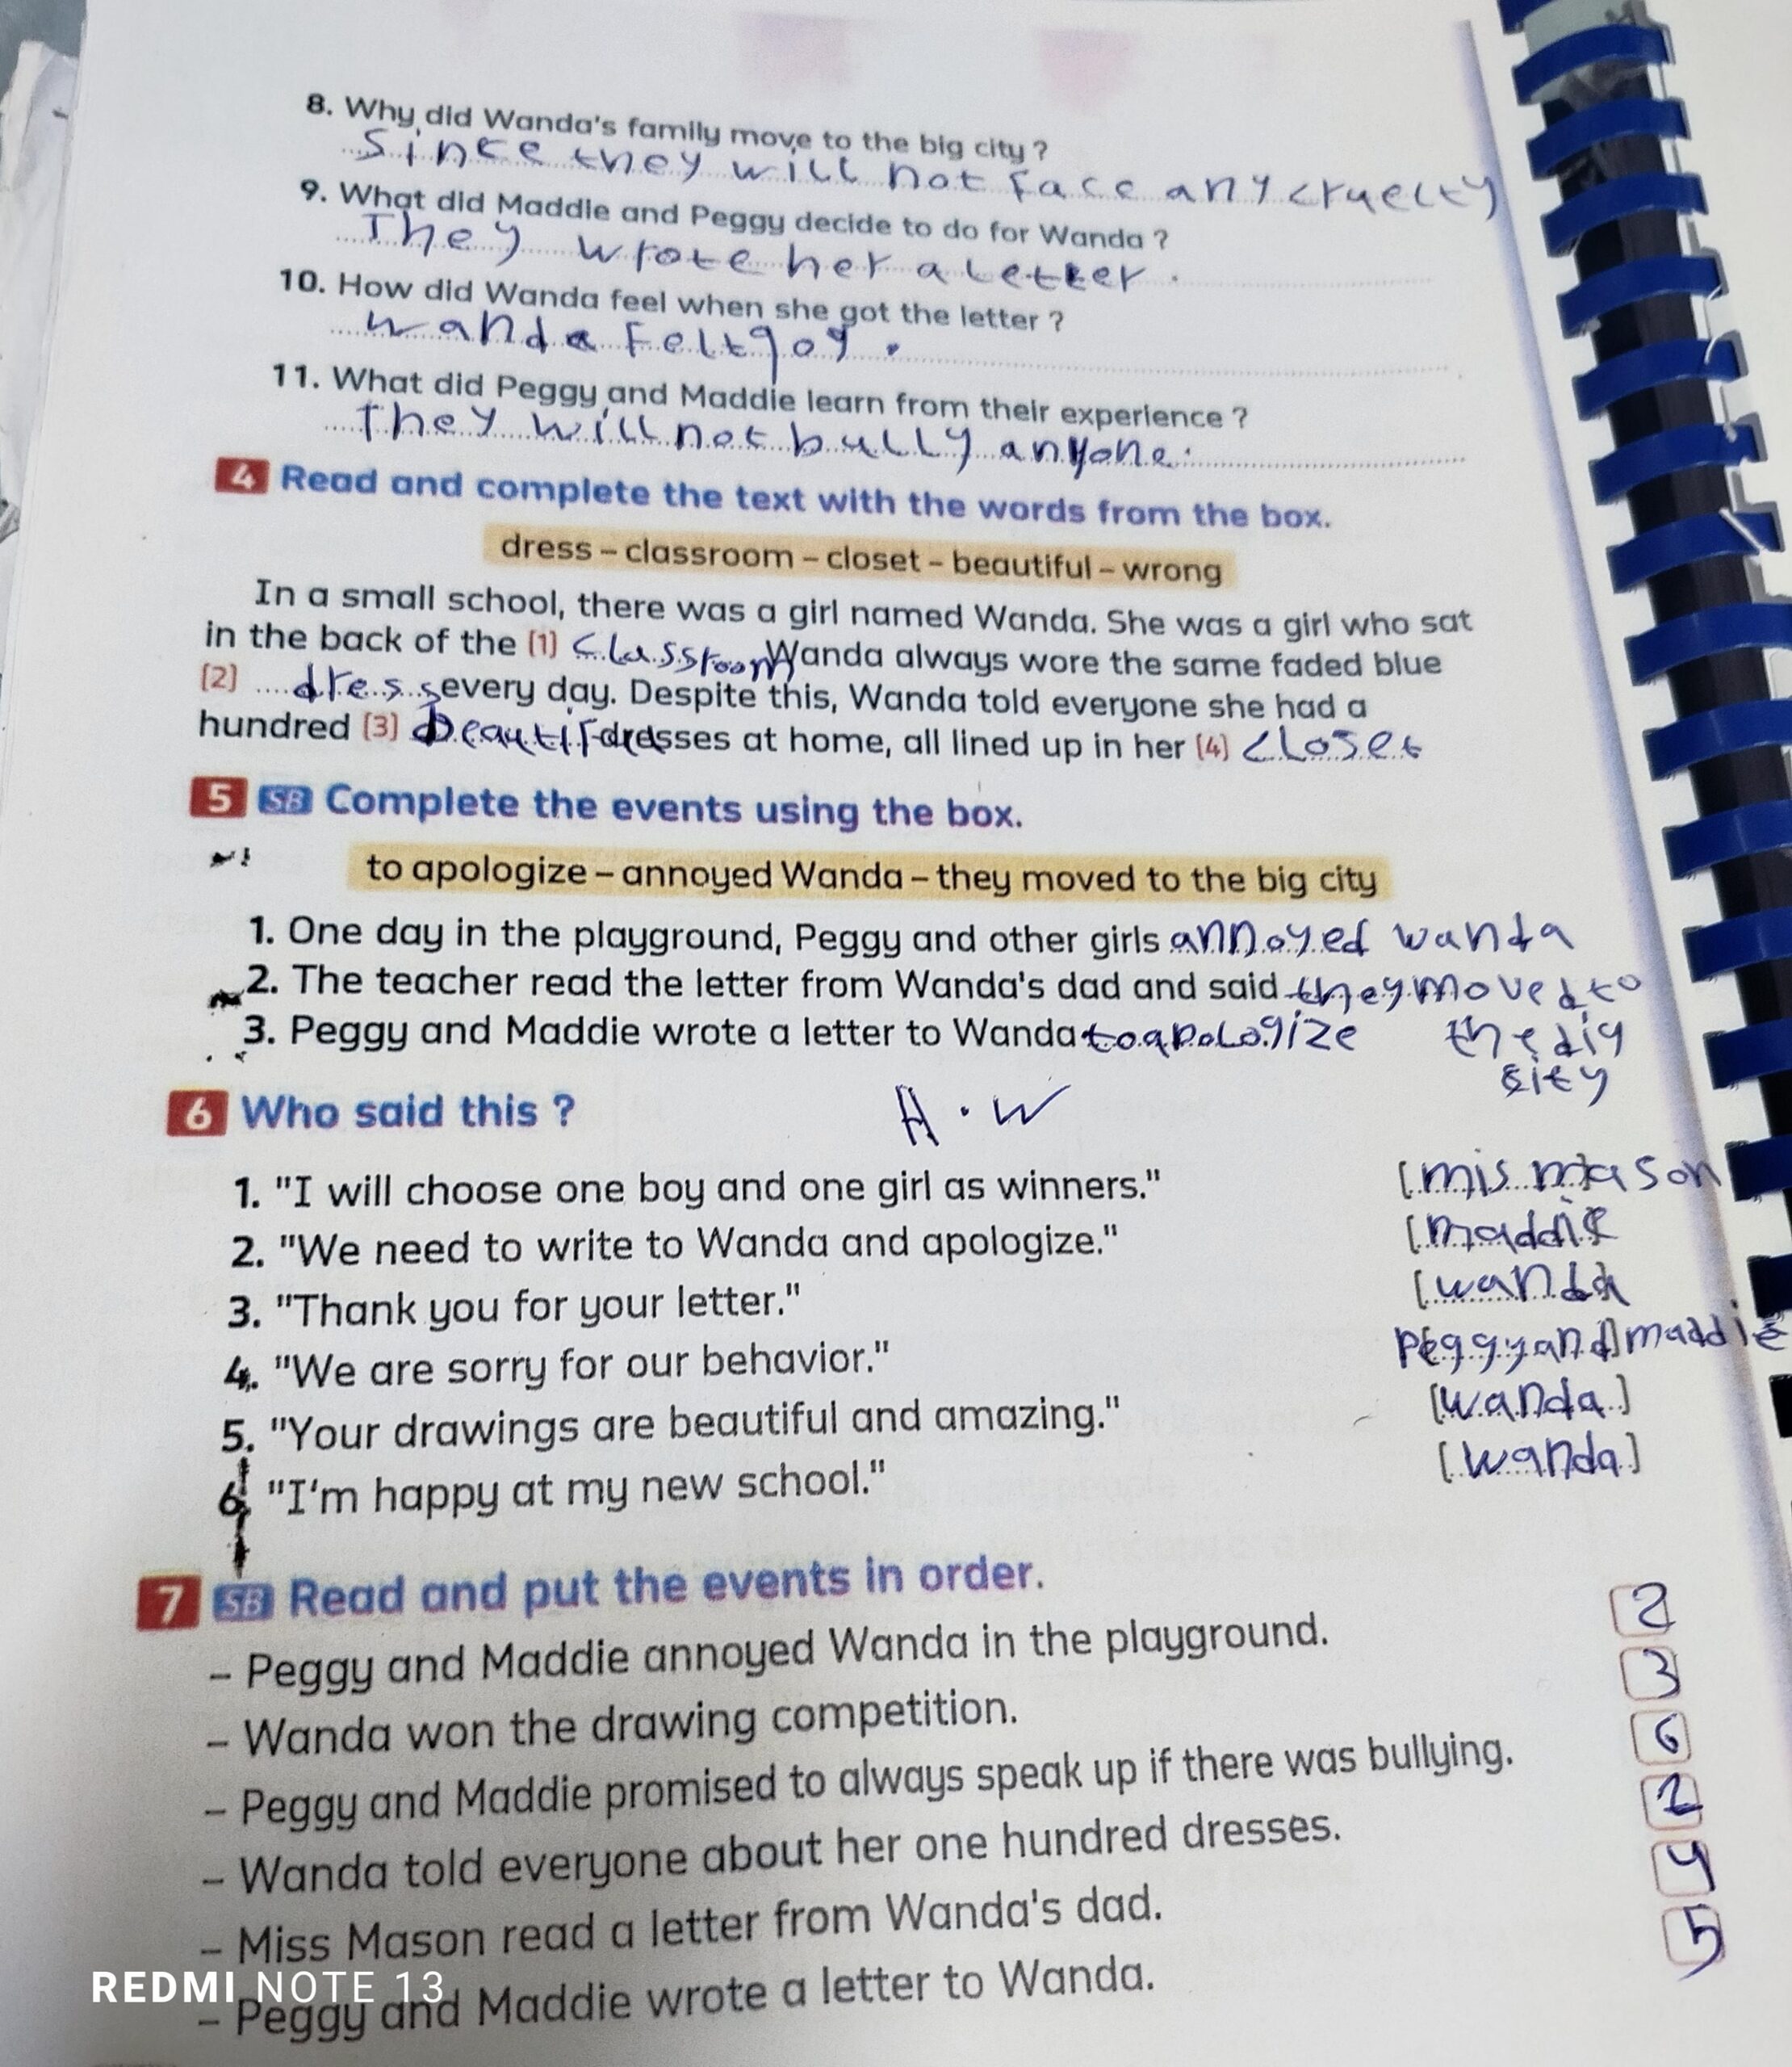 8. Why did Wanda's family move to the big city ?
since they will not face any cruelty
9. What did Maddie and Peggy decide to do for Wanda ?
They wrote her a letter .
10. How did Wanda feel when she got the letter ?
wanda felt goy .
11. What did Peggy and Maddie learn from their experience ?
They will not bully anyone.
4 Read and complete the text with the words from the box.
dress – classroom – closet – beautiful – wrong
In a small school, there was a girl named Wanda. She was a girl who sat
in the back of the (1) classroom Wanda always wore the same faded blue
(2) dress every day. Despite this, Wanda told everyone she had a
hundred (3) beautiful dresses at home, all lined up in her (4) closet
5 SB Complete the events using the box.
to apologize – annoyed Wanda – they moved to the big city
1. One day in the playground, Peggy and other girls annoyed wanda
2. The teacher read the letter from Wanda's dad and said they moved to
3. Peggy and Maddie wrote a letter to Wanda to apologize the big
city
6 Who said this ? H.W
1. "I will choose one boy and one girl as winners." [mis mason
2. "We need to write to Wanda and apologize." [maddie
3. "Thank you for your letter." [wanda
4. "We are sorry for our behavior." [Peggy and] maddie
5. "Your drawings are beautiful and amazing." [wanda]
6. "I'm happy at my new school." [wanda]
7 SB Read and put the events in order.
– Peggy and Maddie annoyed Wanda in the playground. 2
– Wanda won the drawing competition. 3
– Peggy and Maddie promised to always speak up if there was bullying. 6
– Wanda told everyone about her one hundred dresses. 1
– Miss Mason read a letter from Wanda's dad. 4
– Peggy and Maddie wrote a letter to Wanda. 5
REDMI NOTE 13